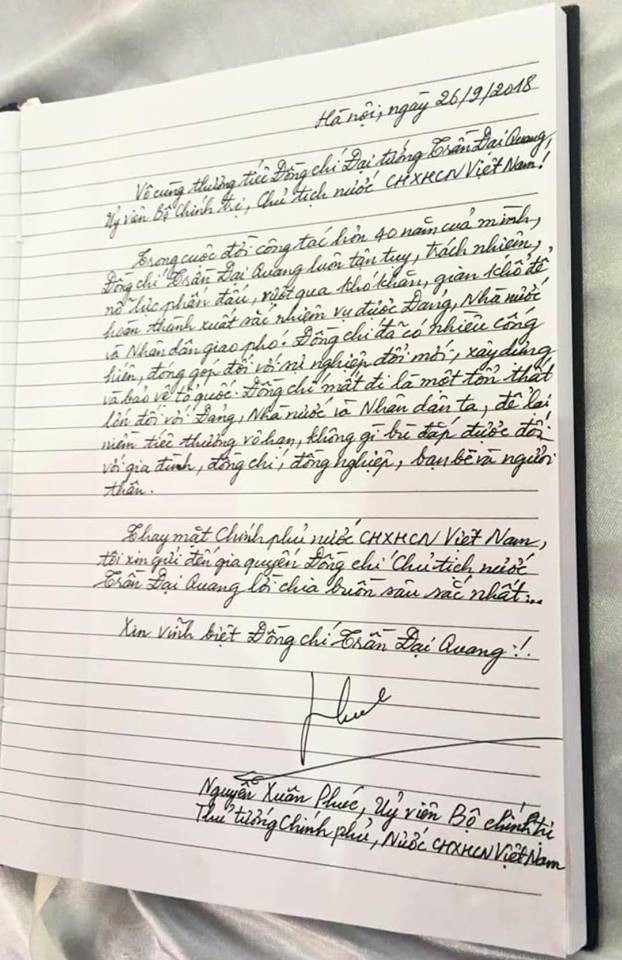 Hà nội, ngày 26/9/2018
Vô cùng thương tiếc Đồng chí Đại tướng Trần Đại Quang,
Uỷ viên Bộ Chính trị, Chủ tịch nước CHXHCN Việt Nam!
Trong cuộc đời công tác hơn 40 năm của mình,
Đồng chí Trần Đại Quang luôn tận tuỵ, trách nhiệm,
nỗ lực phấn đấu, vượt qua khó khăn, gian khổ để
hoàn thành xuất sắc nhiệm vụ được Đảng, Nhà nước
và Nhân dân giao phó. Đồng chí đã có nhiều công
hiến, đóng góp đối với sự nghiệp đổi mới, xây dựng
và bảo vệ tổ quốc. Đồng chí mất đi là một tổn thất
lớn đối với Đảng, Nhà nước và Nhân dân ta, để lại
niềm tiếc thương vô hạn, không gì bù đắp được đối
với gia đình, đồng chí, đồng nghiệp, bạn bè và người
thân.
Thay mặt Chính phủ nước CHXHCN Việt Nam,
tôi xin gửi đến gia quyến Đồng chí Chủ tịch nước
Trần Đại Quang lời chia buồn sâu sắc nhất...
Xin vĩnh biệt Đồng chí Trần Đại Quang!
Phuc
Nguyễn Xuân Phúc, Uỷ viên Bộ chính trị
Thủ tướng Chính phủ, Nước CHXHCN Việt Nam